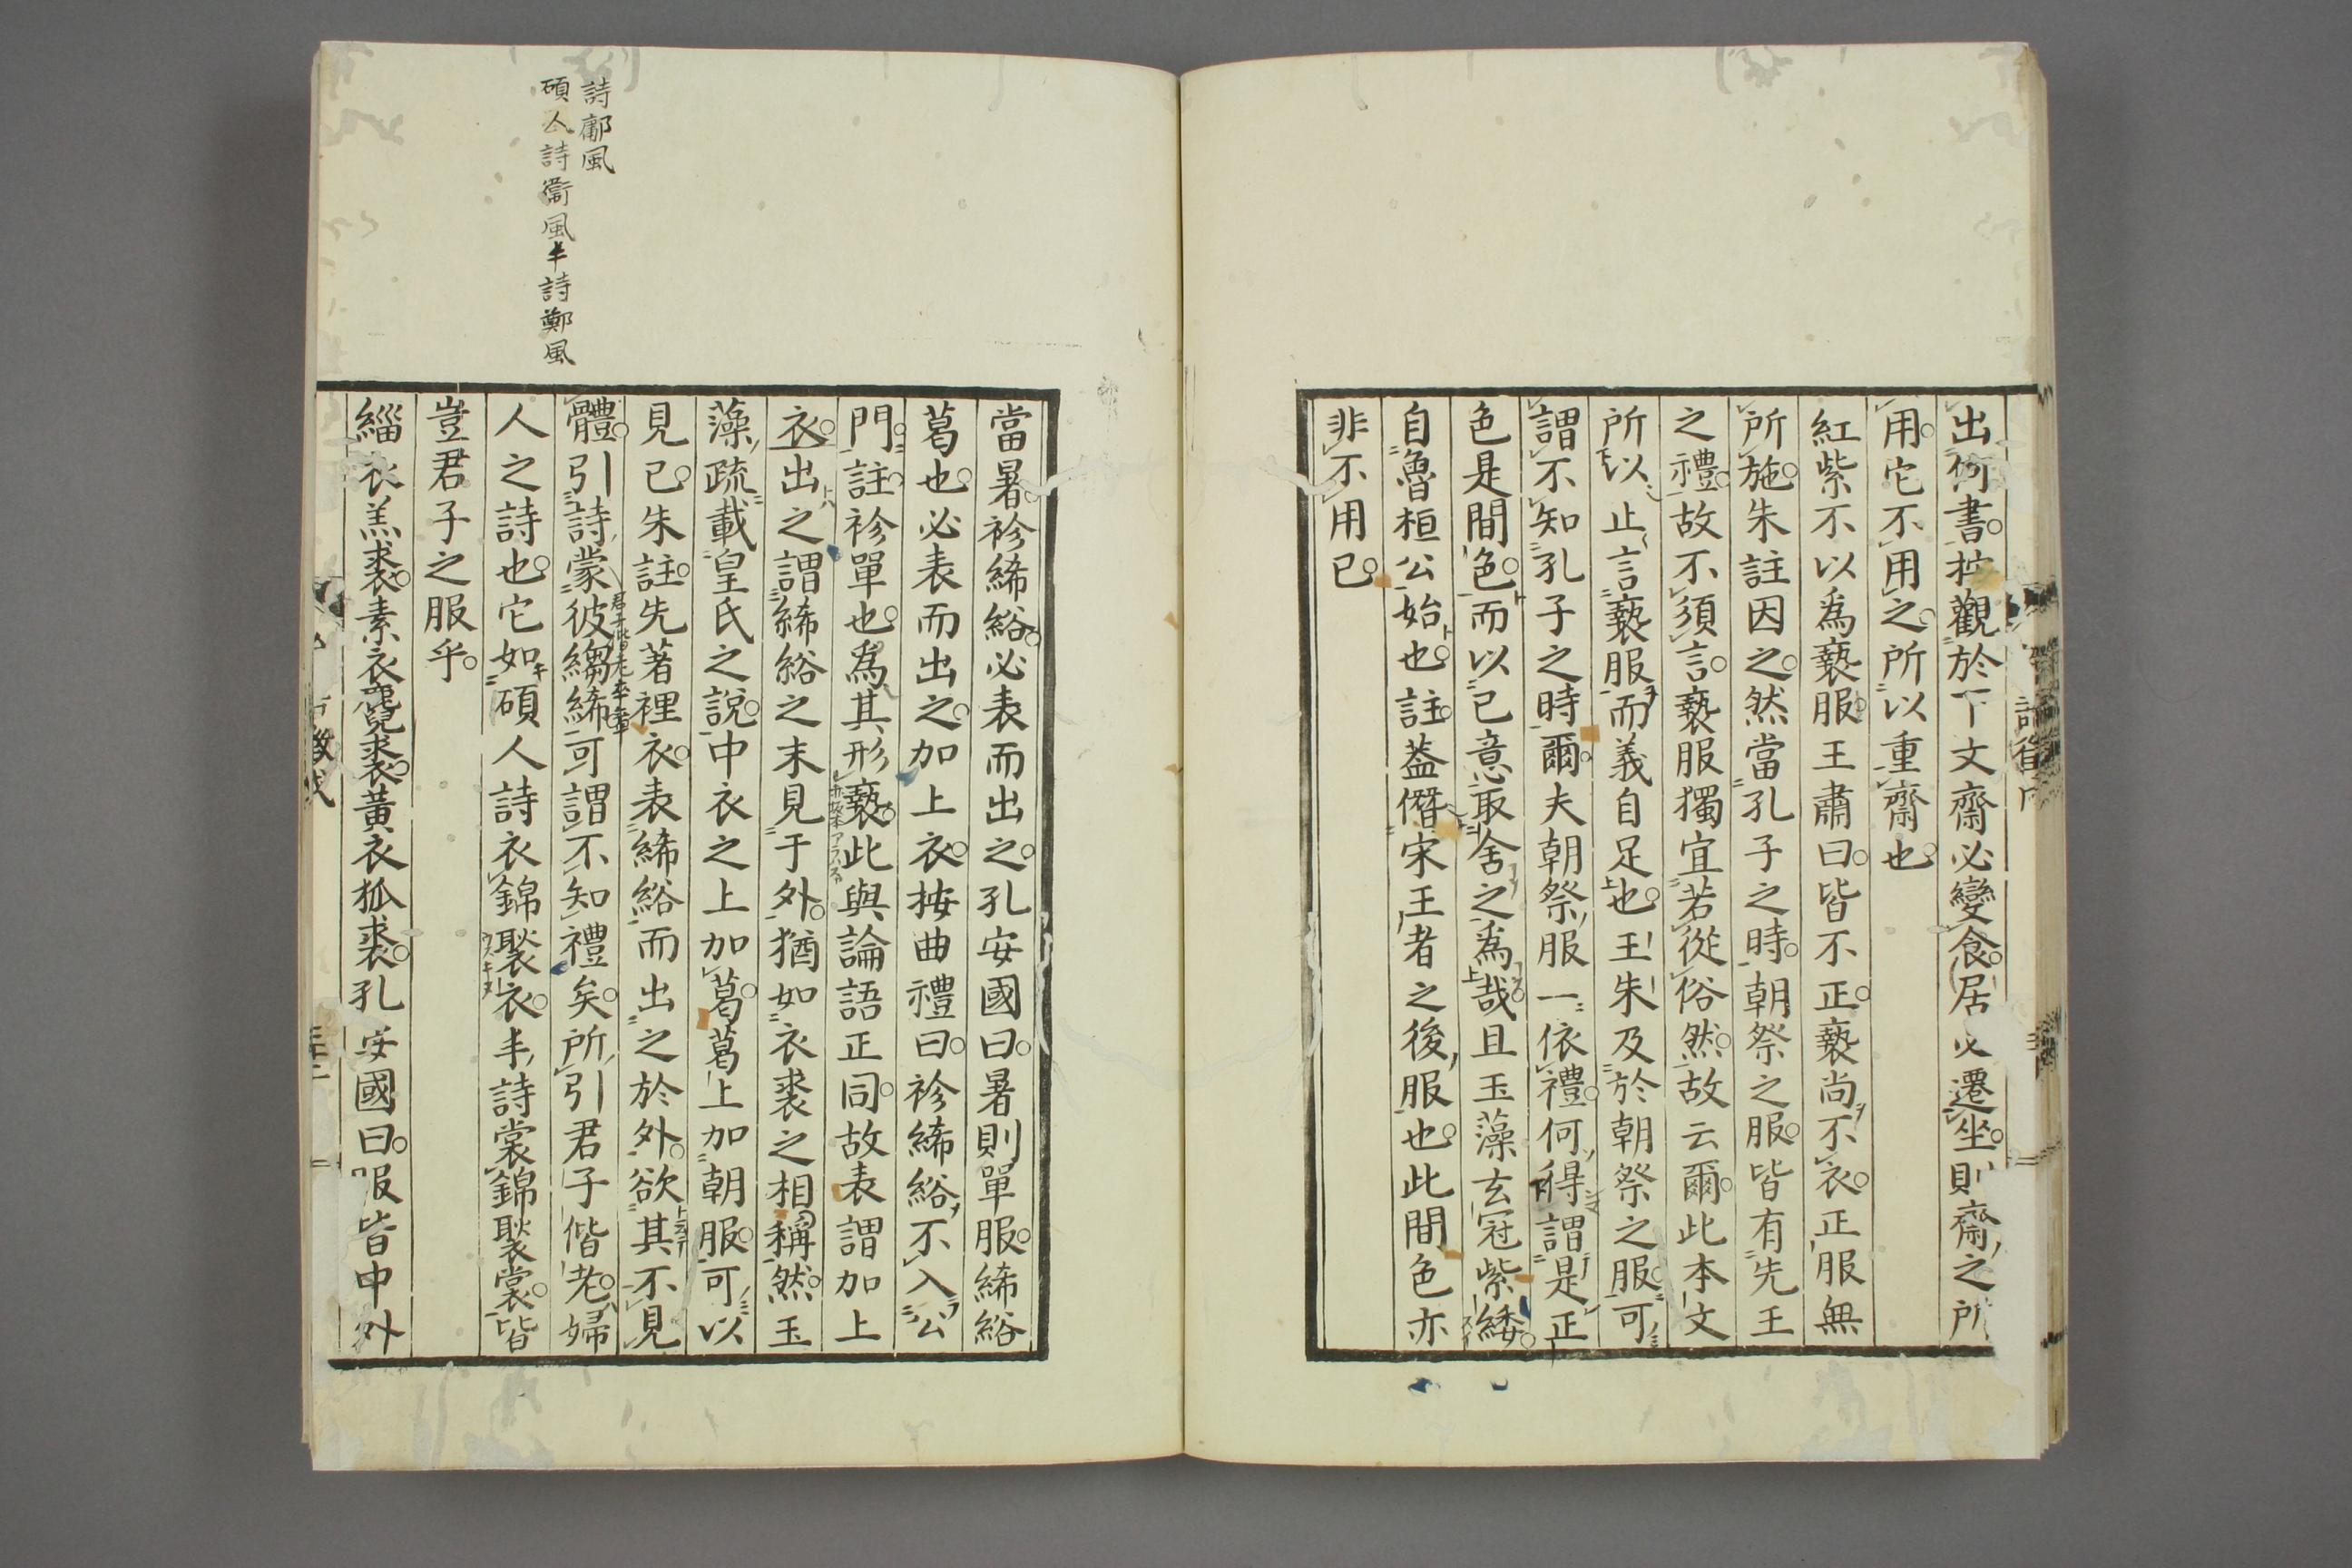 出何書按觀於下文齋必變食居必遷坐則齋之所
用它不用之所以重齋也
紅紫不以爲褻服王肅曰皆不正褻尚不衣正服無
所施朱註因之然當孔子之時朝祭之服皆有先王
之禮故不須言褻服獨宜若從俗然故云爾此本文
所以止言褻服而義自足也王朱及於朝祭之服可
謂不知孔子之時爾夫朝祭服一依禮何得謂是正
色是間色而以已意取舍之爲哉且玉藻玄冠紫緌
自魯桓公始也註蓋僭宋王者之後服也此間色亦
非不用已
詩鄘風
碩人詩衞風丰詩鄭風
當暑袗絺綌必表而出之孔安國曰暑則單服絺綌
葛也必表而出之加上衣按曲禮曰袗絺綌不入公
門註袗單也爲其形褻此與論語正同故表謂加上
衣出之謂絺綌之末見于外猶如衣裘之相稱然玉
藻疏載皇氏之說中衣之上加葛葛上加朝服可以
見已朱註先著裡衣表絺綌而出之於外欲其不見
體引詩蒙彼縐絺可謂不知禮矣所引君子偕老婦
人之詩也它如碩人詩衣錦褧衣丰詩裳錦褧裳皆
豈君子之服乎
緇衣羔裘素衣麑裘黃衣狐裘孔安國曰服皆中外